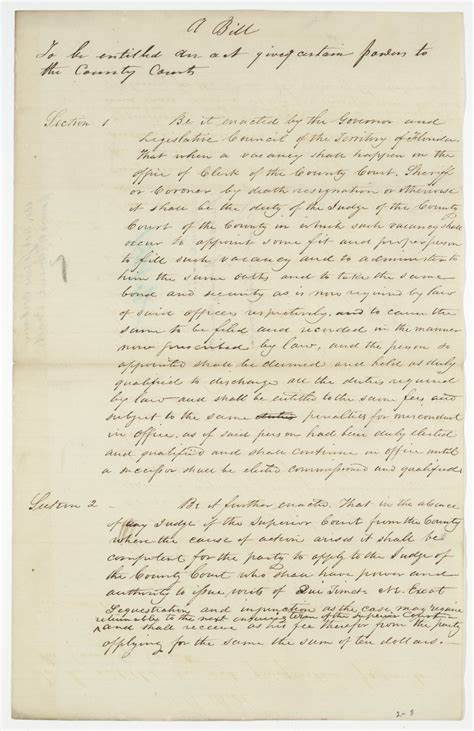 A Bill
To be entitled an act giving certain powers to
the County Courts
Section 1 Be it enacted by the Governor and
Legislative Council of the Territory of Florida.
That when a vacancy shall happen in the
office of Clerk of the County Court. Sheriff
or Coroner by death resignation or otherwise
it shall be the duty of the Judge of the County
Court of the County in which such vacancy shall
occur to appoint some fit and proper person
to fill such vacancy and to administer to
him the same oaths and to take the same
bond and security as is now required by law
of said officers respectively, and to cause the
same to be filed and recorded in the manner
now prescribed by law, and the person so
appointed shall be deemed and held as duly
qualified to discharge all the duties required
by law and shall be entitled to the same fees and
subject to the same duties penalties for misconduct
in office, as if said person had been duly elected
and qualified and shall continue in office until
a successor shall be elected commissioned and qualified
Section 2 Be it further enacted. That in the absence
of any Judge of the Superior Court from the County
when the cause of action arises it shall be
competent for the party to apply to the Judge of
the County Court who shall have power and
authority to issue writs of Ne Exeat
Sequestration and injunction as the case may require
returnable to the next term of the Superior Court
and shall receive as his fee therefor from the party
applying for the same the sum of ten dollars.